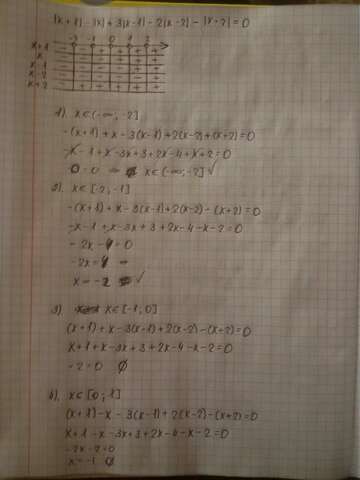 |x+1|-|x|+3|x-1|-2|x-2|-|x+2|=0
-2 -1 0 1 2
x+1 - - + + + +
x - - - + + +
x-1 - - - - + +
x-2 - - - - - +
x+2 - + + + + +
1). x∈(-∞;-2]
-(x+1)+x-3(x-1)+2(x-2)+(x+2)=0
-x-1+x-3x+3+2x-4+x+2=0
0=0 ⇒ x∈(-∞;-2] ✓
2). x∈[-2;-1]
-(x+1)+x-3(x-1)+2(x-2)-(x+2)=0
-x-1+x-3x+3+2x-4-x-2=0
-2x-4=0
-2x=4
x=-2 ✓
3) x∈[-1;0]
(x+1)+x-3(x-1)+2(x-2)-(x+2)=0
x+1+x-3x+3+2x-4-x-2=0
-2=0 ∅
4). x∈[0;1]
(x+1)-x-3(x-1)+2(x-2)-(x+2)=0
x+1-x-3x+3+2x-4-x-2=0
-2x-2=0
x=-1 ∅